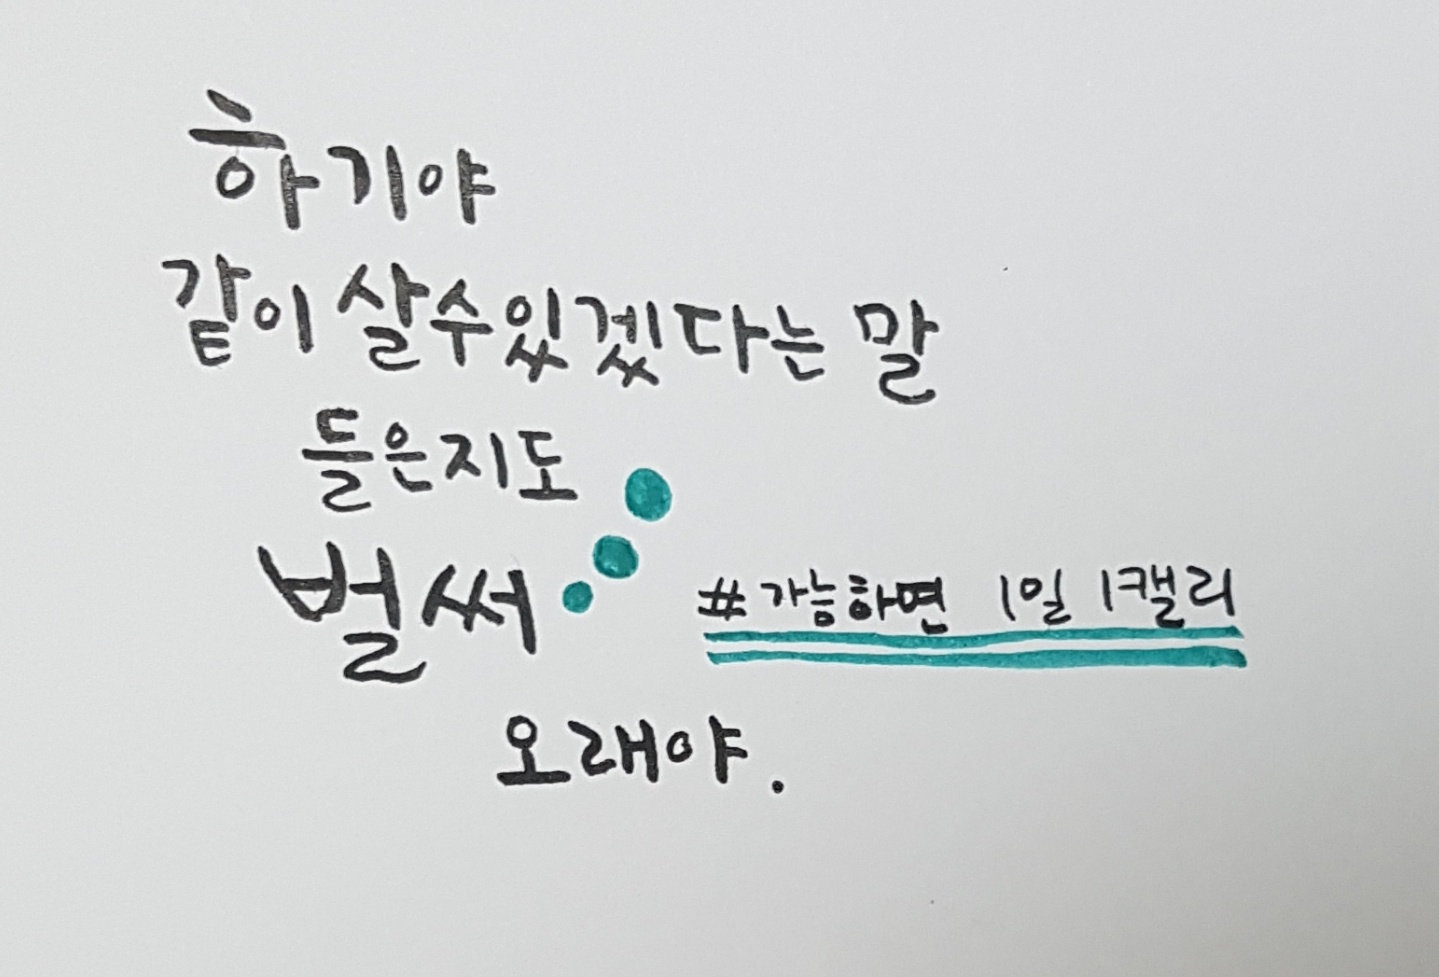 하기야
같이 살수있겠다는 말
들은지도
벌써
#가능하면 1일 1캘리
오래야.